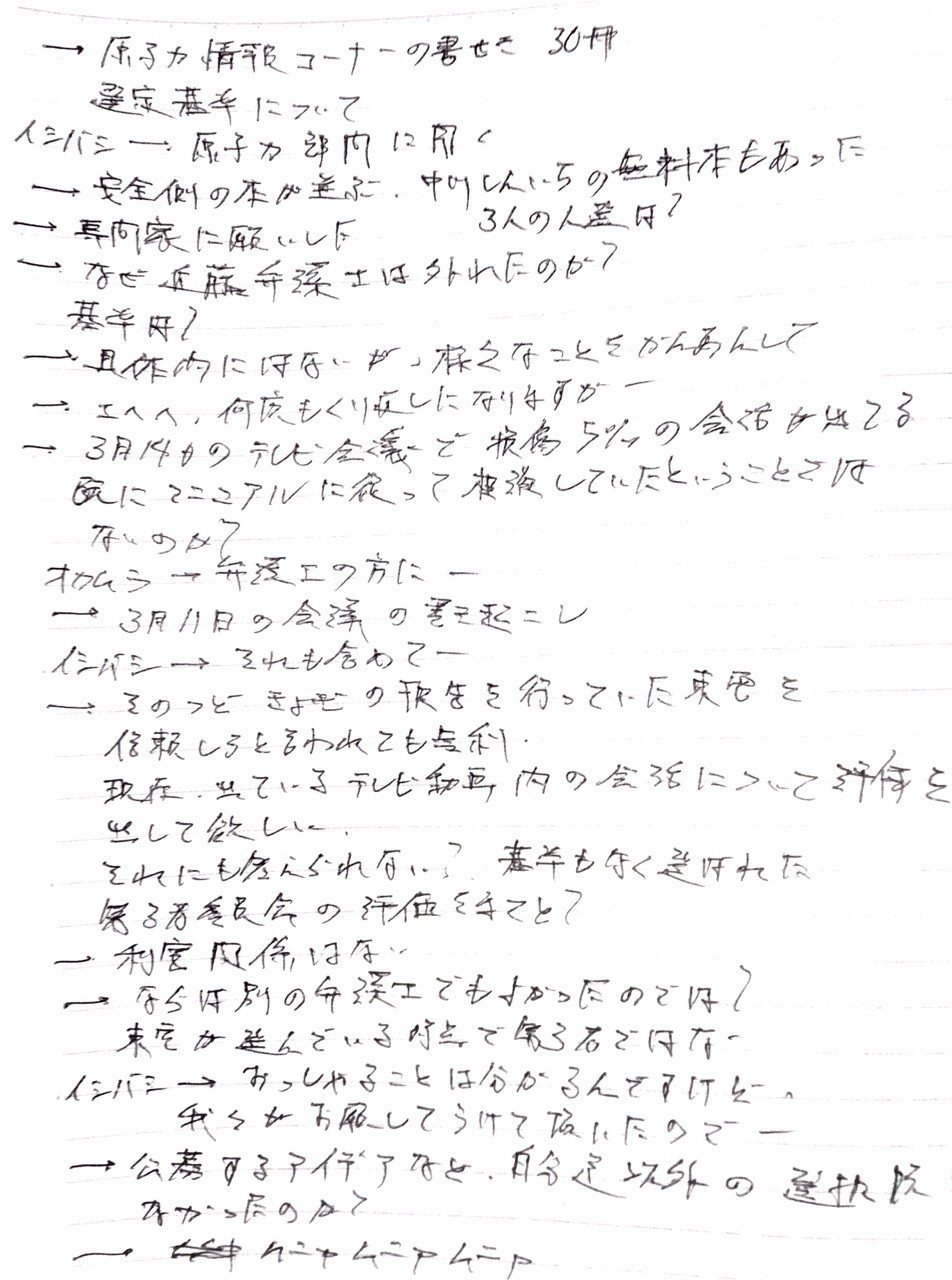 → 原子力情報コーナーの書せき 30冊
選定基準について
イシバシ → 原子力部内に聞く
→ 安全側の本が並ぶ、中川しんいちの無料本もあった
3人の人選は?
→ 専門家に願いした
→ なぜ近藤弁護士は外れたのか?
基準は?
→ 具体的にはないが、様々なことをかんあんして
→ エヘヘ、何度もくり返しになりますがー
→ 3月14日のテレビ会議で損傷5%の会話が出てる
既にマニュアルに従って
ないのか?
オカムラ → 弁護士の方にー
→ 3月11日の会議の書き起こし
イシバシ → それも含めてー
→ そのつどきょぎの報告を行っていた東電を
信頼しろと言われても無利.
現在、出ているテレビ動画内の会話について評価を
出して欲しい、
それにも答えられない? 基準もなく選ばれた
第3者委員会の評価をまてと?
→ 利害関係はない
→ ならば別の弁護士でもよかったのでは?
東電が選んでいる時点で第3者ではない
イシバシ → おっしゃることは分かるんですけど、
我々がお願してうけて頂いたのでー
→ 公募するアイデアなど、自分達以外の選択は
なかったのか?
→ ムニャムニャムニャ